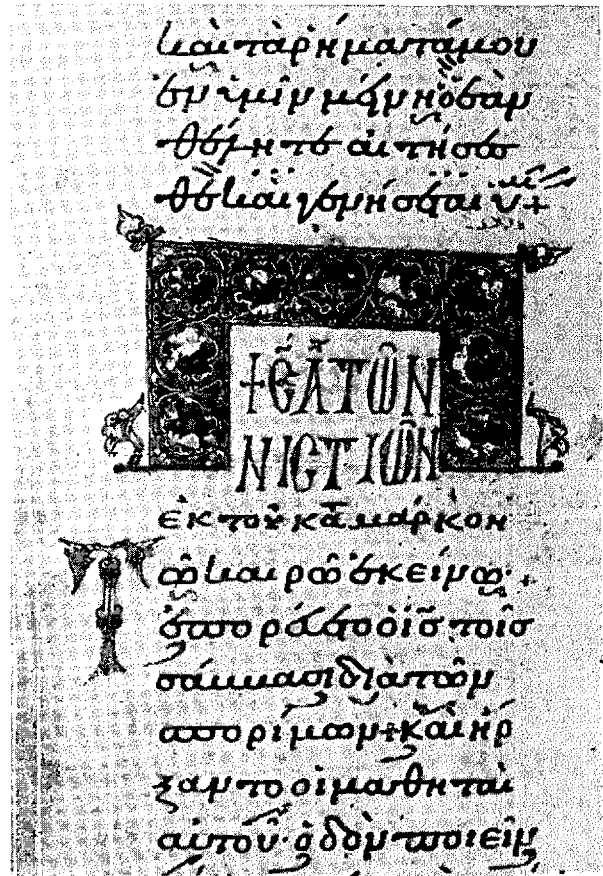 καὶ τὰ ρήματά μου
ἐν ὑμῖν μείνη ὃ ἐὰν
θέλητε αἰτήσα
σθε καὶ γενήσεται ὑμῖν +
+ ϵ̄ ᾱ ΤῶΝ
ΝΙϹΤΙῶΝ
ἐκ τοῦ κα̅ μάρκον
Τῶ καιρῶ ἐκείνω· +
ἐπορεύετο ὁ ἰ̅ς̅ τοῖς
σάμμασι διὰ τῶν
σπορίμων + καὶ ἤρ
ξαντο οἱ μαθηταὶ
αὐτοῦ· ὁδὸν ποιεῖν